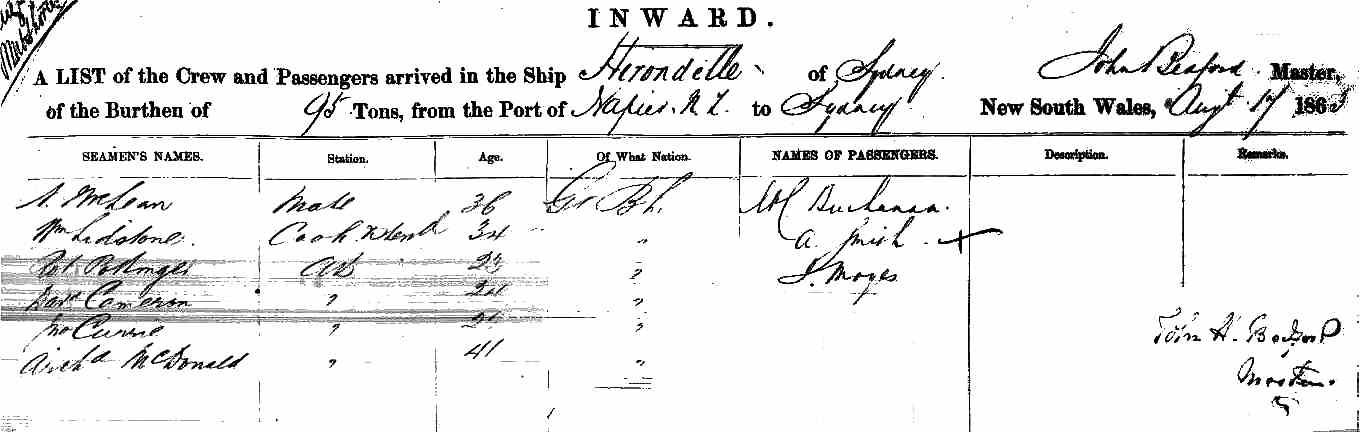 INWARD.
A LIST of the Crew and Passengers arrived in the Ship Herondelle of Sydney. John Bedford Master,
of the Burthen of 95 Tons, from the Port of Napier. N Z. to Sydney New South Wales, Augt 17 186
SEAMEN'S NAMES. Station. Age. Of What Nation. NAMES OF PASSENGERS. Description. Remarks.
A. McLean Mate 36 Gt Bt. Buchanan.
Wm Lidstone. Cook & 34 " A. Smith
Rot AB 23 " J. Moyes
Cameron " 24 "
Jno Currie " "
Archd McDonald " 41 "
John H. Bedford
Master.